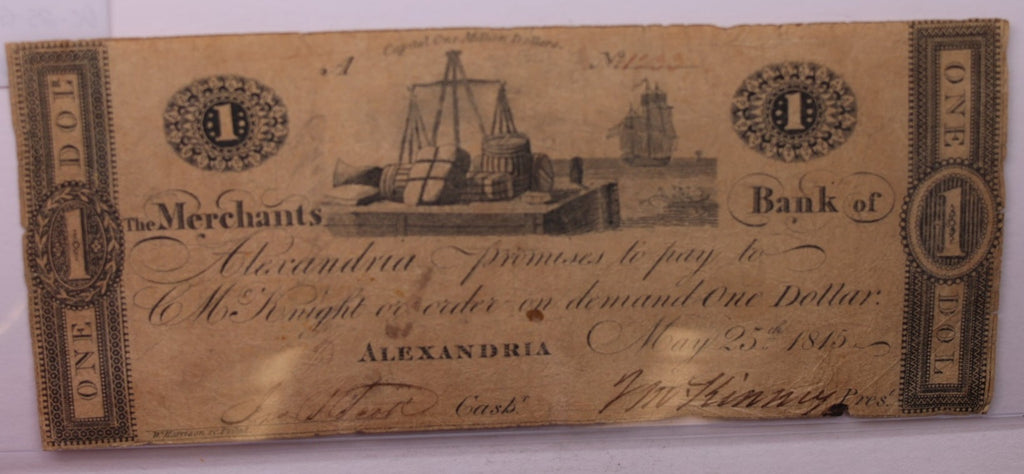 Capital One Million Dollars.
A
No. 1233
1
1
The Merchants Bank of
Alexandria promises to pay to
C McKnight or order on demand One Dollar.
ALEXANDRIA May 25th 1815
Cashr
Wm Kinney Prest
W. Harrison
ONE 1 DOL
ONE 1 DOL